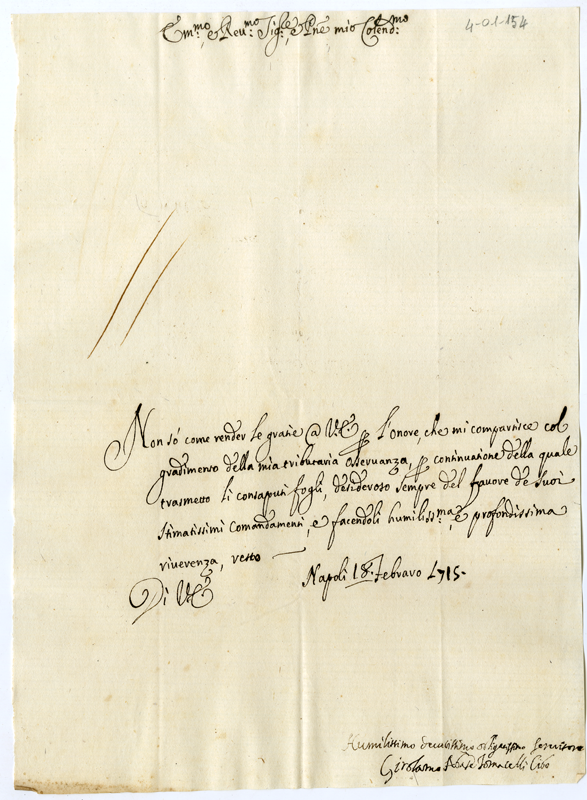 4-01-154
Em.mo e Reu.mo Sig.re e Pne mio Colend.mo
Non sò come render le gratie @ V.E. per l'onore, che mi comparisce col
gradimento della mia tributaria osseruanza, per continuatione della quale
trasmetto li consaputi fogli, desideroso sempre del fauore de suoi
stimatissimi Comandamenti, e facendoli humiliss.ma, e profondissima
riuerenza, resto
Di V.E.
Napoli 18. Febraro 1715.
Humilissimo Deuotissimo Obligatissimo Seruitore
Girolamo Abbate Tomacelli Cibo